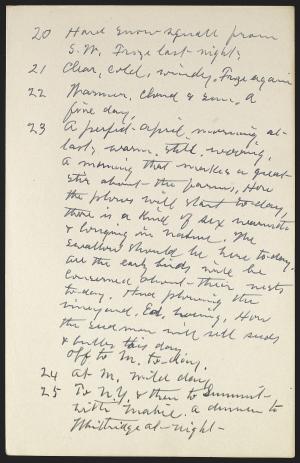 20 Hard snow squall from
S.W. Froze last night;
21 Clear, cold, windy, Froze again
22 Warmer, cloud & sun, a
fine day,
23 A perfect April morning at-
last, warm, still, wooing,
A morning that makes a great
stir about the farms, How
the plows will start to-day,
there is a kind of sex
& longing in nature. The
swallow should be here to-day.
All the early birds will be
concerned about their nests
to-day. Hud plowing the
vineyard, Ed, hoeing, How
the seedman will sell seeds
& bulbs this day,
Off to M. to-day.
24 At M. mild day,
25 To N.Y. & then to Summit
with Mabie. a dinner to
Whitridge at-night-